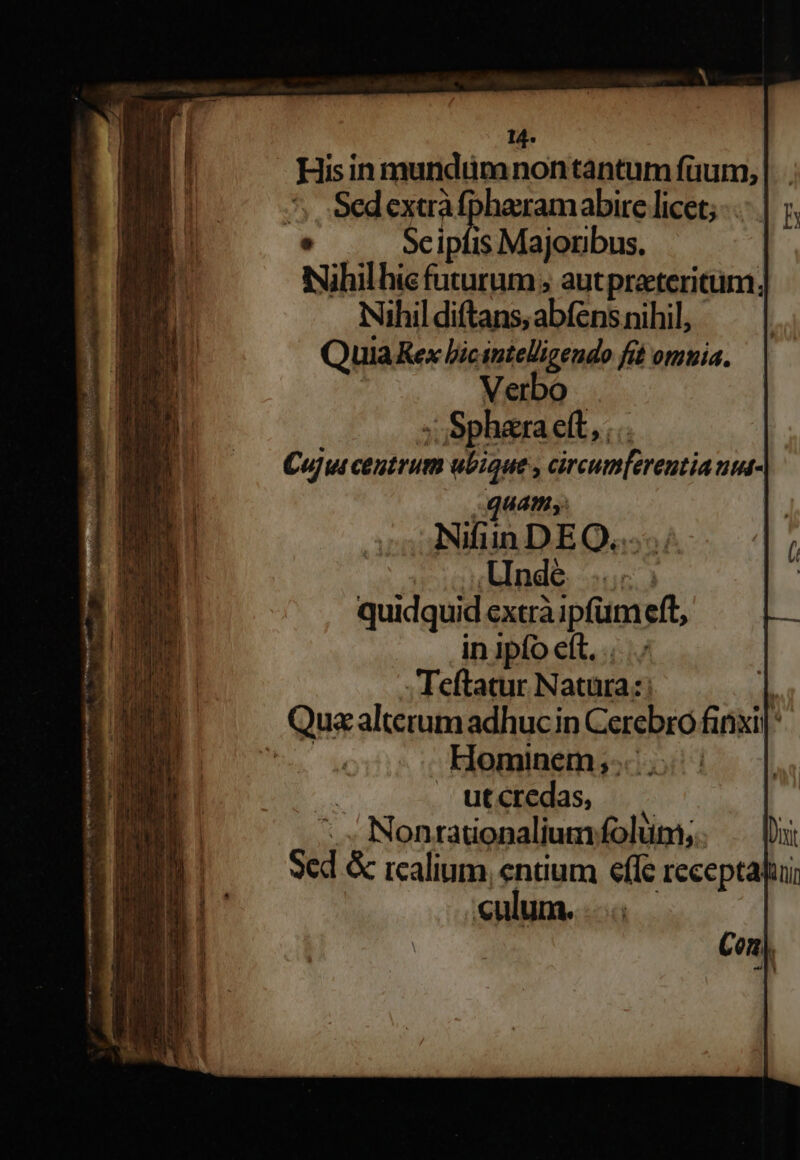 14.
His in mundùm non tantum ſüum,
Sed extrà ſphæram abire licet;
Seipſis Majoribus.
Nihil hic futurum, aut præteritùm,
Nihil diſtans, abſens nihil,
Quia Rex hic intelligendo fit omnia.
Verbo
Sphæra eſt,
Cujus centrum ubique, circumferentia nus-
quam,
Niſi in DEO.
Undè
quidquid extrà ipſùm eſt,
in ipſo eſt.
Teſtatur Natùra:
Quæ alterum adhuc in Cerebro finxi
Hominem,
ut credas,
Non rationalium ſolùm,
Sed & realium entium eſſe recepta-
culum.
Con-